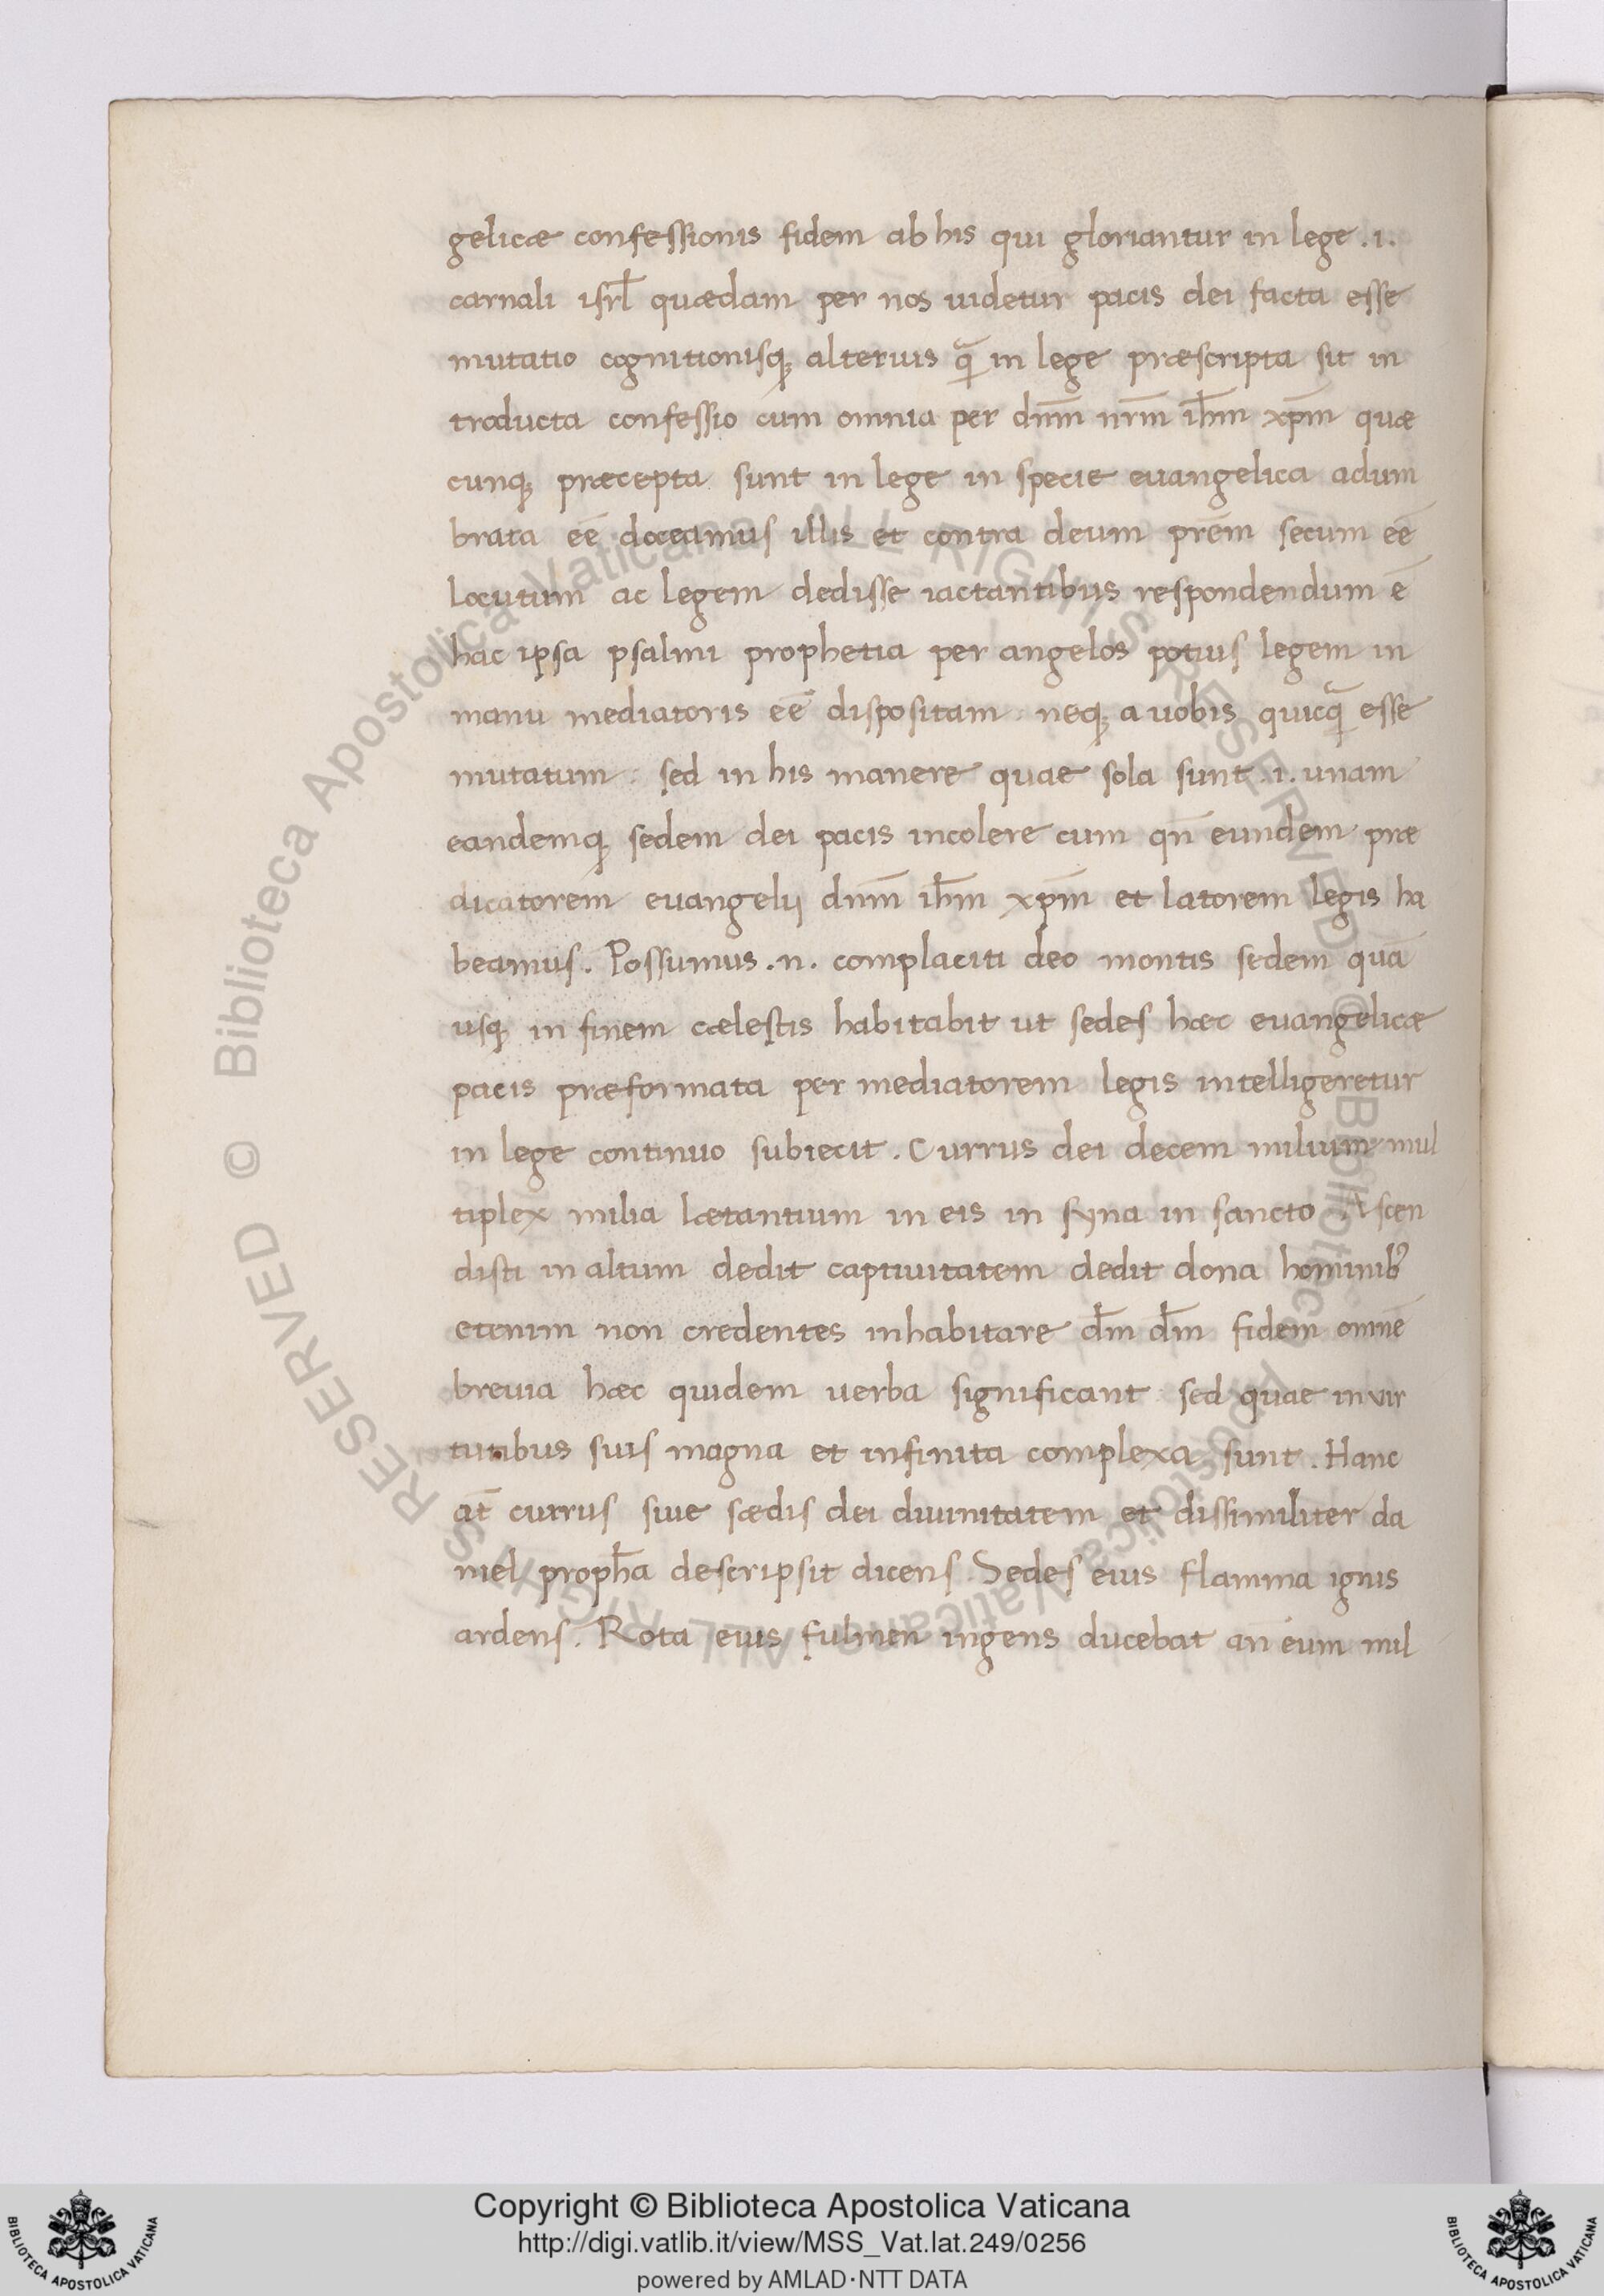 gelicæ confessionis fidem ab his qui gloriantur in lege .i.
carnali isrl̄ quædam per nos uidetur pacis dei facta esse
mutatio cognitionisq; alterius q̄ in lege præscripta sit in
troducta confessio cum omnia per dnm̄ nrm̄ ihm̄ xpm̄ quæ
cunq; præcepta sunt in lege in specie euangelica adum
brata eē doceamus illis et contra deum prēm secum eē
locutum ac legem dedisse iactantibus respondendum ē
hac ipsa psalmi prophetia per angelos potius legem in
manu mediatoris eē dispositam neq; a uobis quicq̄ esse
mutatum : sed in his manere quae sola sunt .i. unam
eandemq; sedem dei pacis incolere cum qn̄ eundem præ
dicatorem euangelij dnm̄ ihm̄ xpm̄ et latorem legis ha
beamus. Possumus .n. complaciti deo montis sedem quā
usq; in finem cælestis habitabit ut sedes hæc euangelicæ
pacis præformata per mediatorem legis intelligeretur
in lege continuo subiecit. Currus dei decem milium mul
tiplex milia lætantium in eis in syna in sancto Ascen
disti in altum dedit captiuitatem dedit dona hominib9
etenim non credentes inhabitare dm̄ dm̄ fidem omnē
breuia hæc quidem uerba significant sed quae in vir
tutibus suis magna et infinita complexa sunt. Hanc
at̄ currus siue sædis dei diuinitatem et dissimiliter da
niel proph̄a descripsit dicens. Sedes eius flamma ignis
ardens. Rota eius fulmen ingens ducebat an̄ eum mil
Biblioteca Apostolica Vaticana ALL RIGHTS RESERVED © Biblioteca Apostolica Vaticana ALL RIGHTS RESERVED ©
Copyright © Biblioteca Apostolica Vaticana
http://digi.vatlib.it/view/MSS_Vat.lat.249/0256
powered by AMLAD·NTT DATA
BIBLIOTECA APOSTOLICA VATICANA
BIBLIOTECA APOSTOLICA VATICANA